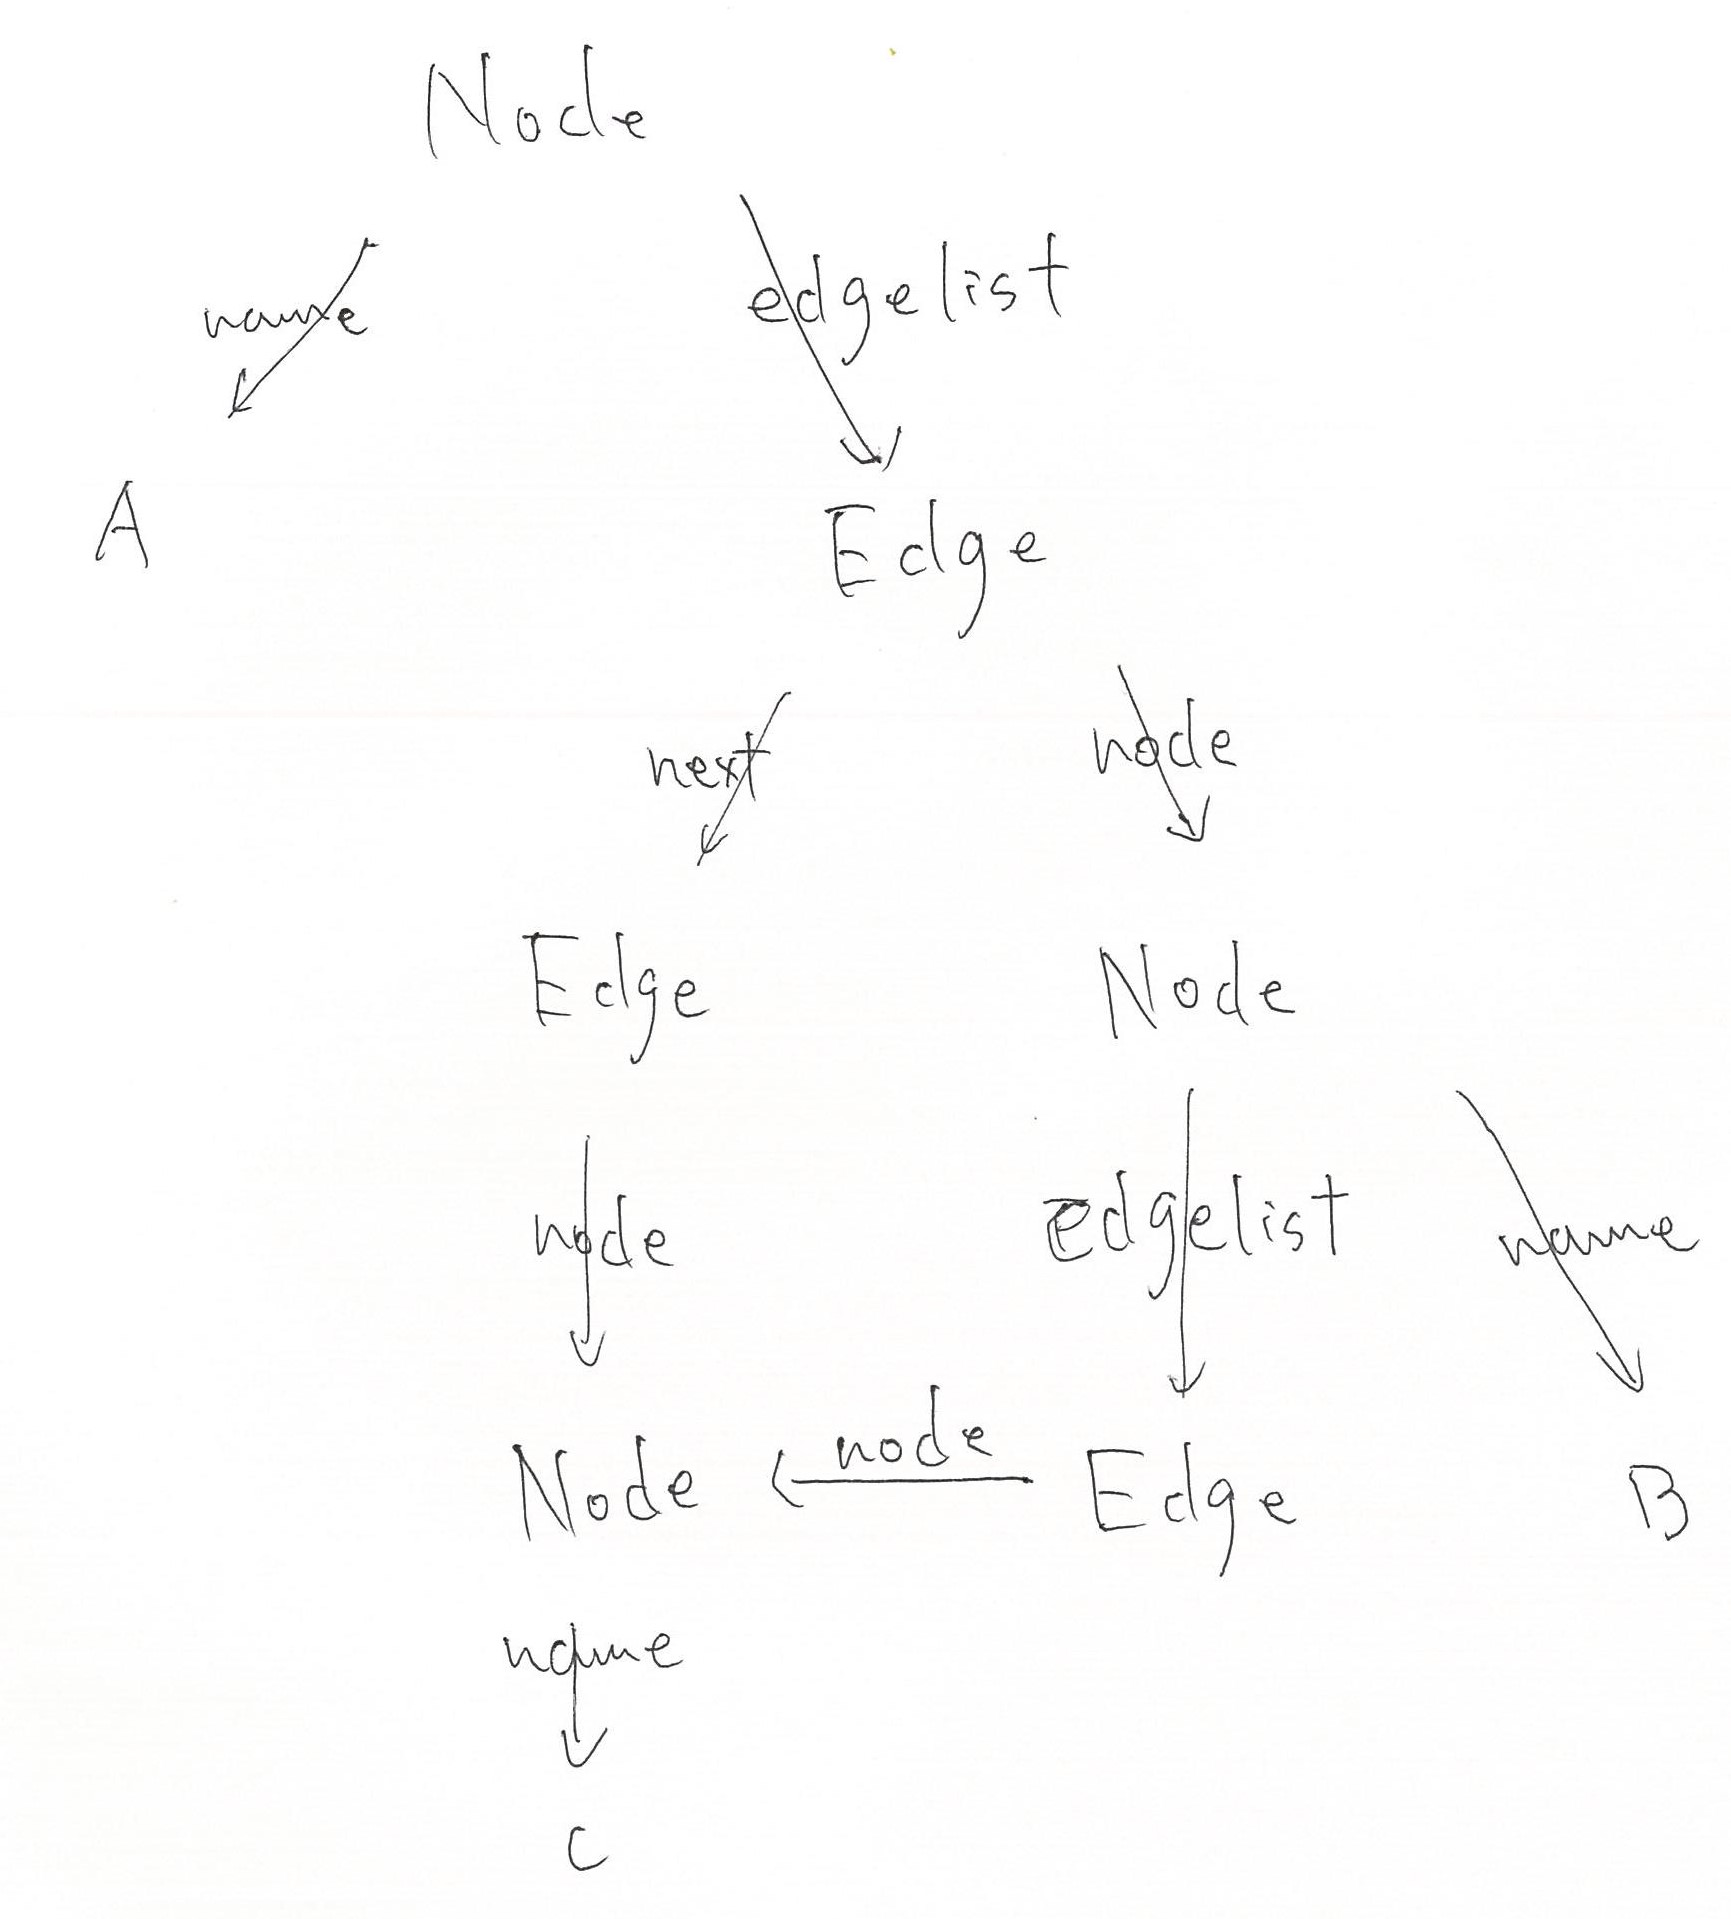 Node
name
edgelist
A
Edge
next
node
Edge
Node
node
edgelist
name
Node
node
Edge
B
name
C